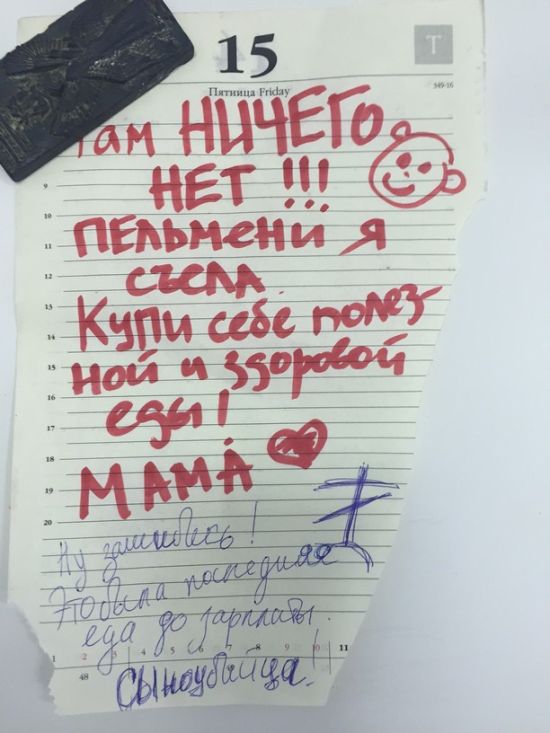 15
T
Пятница Friday
349-16
Там НИЧЕГО
НЕТ !!!
9
10
ПЕЛЬМЕНИ Я
11
12
СЪЕЛА.
13
Купи себе полез-
14
ной и здоровой
15
16
еды!
17
18
МАМА
19
20
Ну зашибись!
Это была последняя
еда до зарплаты.
1 2 3 4 5 6 7 8 9 10 11
48
Сыноубийца!